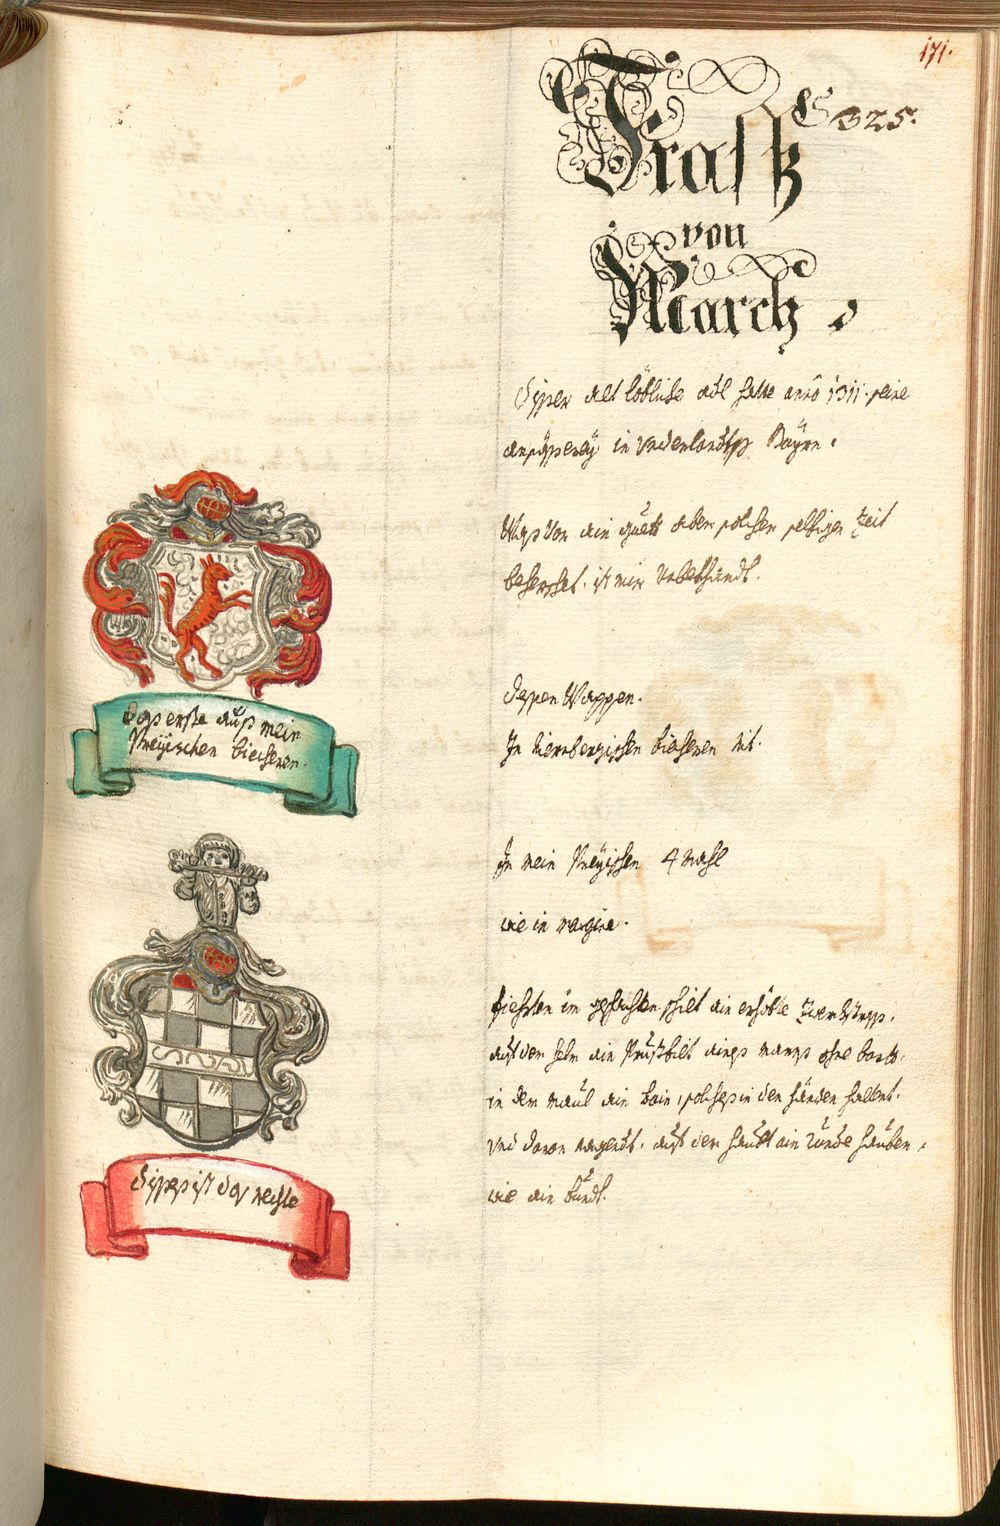 171.
Trasß
325.
von
March
Dißer alt löbliche adl hatte anno 1311. seine
in Underlandtß Bayrn.
Waß Vor ain guett aber solcher selbiger Zeit
besessen. ist mir Unbekhandt.
Dessen Wappen.
In Niernbergischen biecheren nit.
In mein Preÿischen 4 mahl
wie in margine.
fiehrten im geschachten schilt ain erhöbte Zwerchstraß.
auf dem helm ain Prustbilt aines mannß ohne bartt.
in dem maul ain bain, solches in den händen haltent.
Und daran nagendt. auf dem haubt ain runde hauben
wie ain bundt.
Daß erste auß mein
Preÿischen biecheren.
Dißes ist das rechte